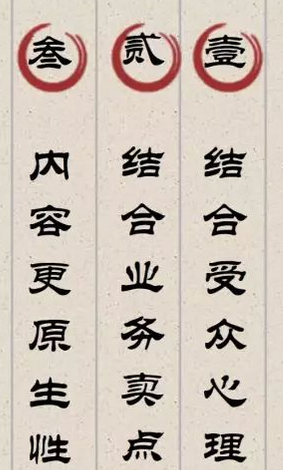 壹
结合受众心理
贰
结合业务卖点
叁
内容更原生性